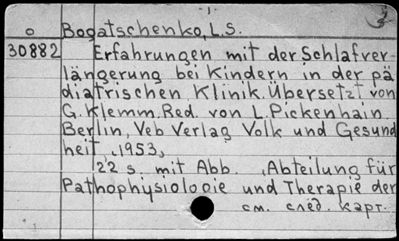 - 1 -
o Bogatschenko, L.S.
30882 Erfahrungen mit der Schlafver-
längerung bei Kindern in der pä
diatrischen Klinik. Übersetzt von
G. Klemm. Red. von L. Pickenhain.
Berlin, Veb Verlag Volk und Gesund
heit, 1953,
22 s. mit Abb. (Abteilung für
Pathophysiologie und Therapie der
см. след. карт.